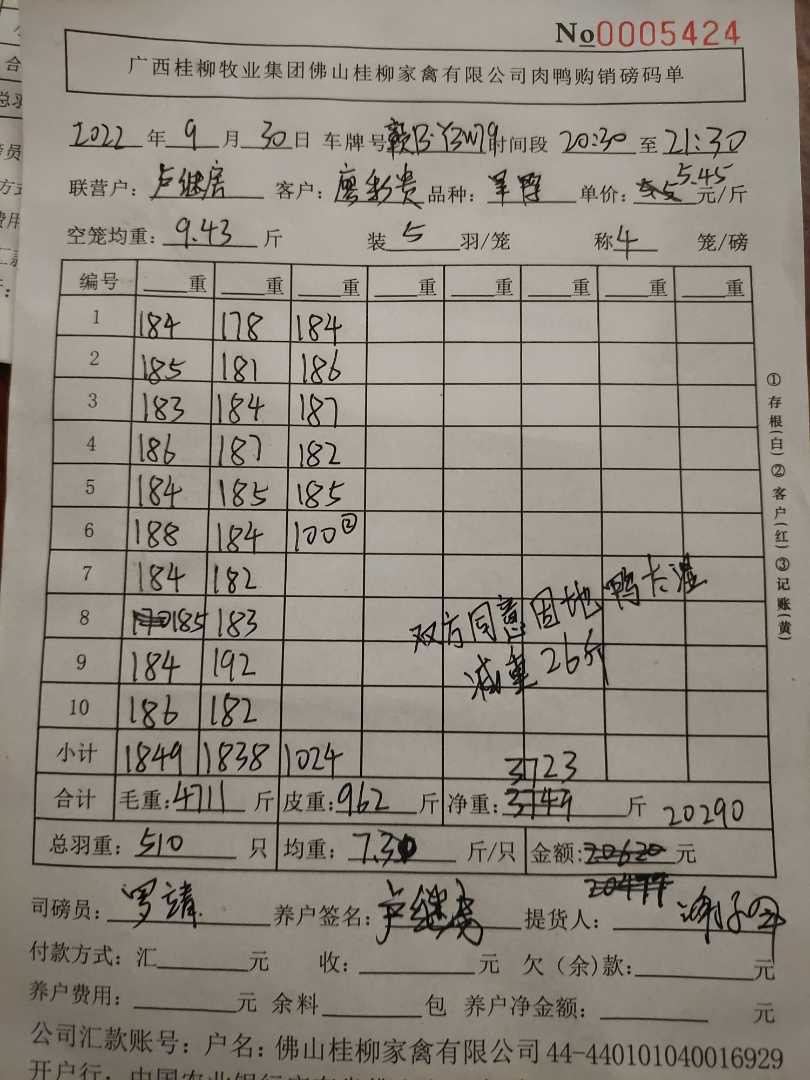 No0005424
广西桂柳牧业集团佛山桂柳家禽有限公司肉鸭购销磅码单
2022年9月30日 车牌号赣B·Y3W79时间段20:30至21:30
联营户:卢继房 客户:廖彩贵 品种: 单价:5.45元/斤
空笼均重:9.43斤 装5羽/笼 称4笼/磅
编号 重 重 重 重 重 重 重 重
1 184 178 184
2 185 181 186
3 183 184 187
4 186 187 182
5 184 185 185
6 188 184 100②
7 184 182
8 185 183
9 184 192
10 186 182
双方同意因地鸭大湿
减重26斤
小计 1849 1838 1024
3723
合计 毛重:4711斤 皮重:962斤 净重:3749斤 20290
总羽重:510只 均重:7.30斤/只 金额:20620元
20477
司磅员:罗靖 养户签名:卢继房 提货人:
付款方式:汇 元 收: 元 欠(余)款: 元
养户费用: 元 余料 包 养户净金额: 元
公司汇款账号:户名:佛山桂柳家禽有限公司44-440101040016929
开户行:中国农业银行
①存根(白)②客户(红)③记账(黄)